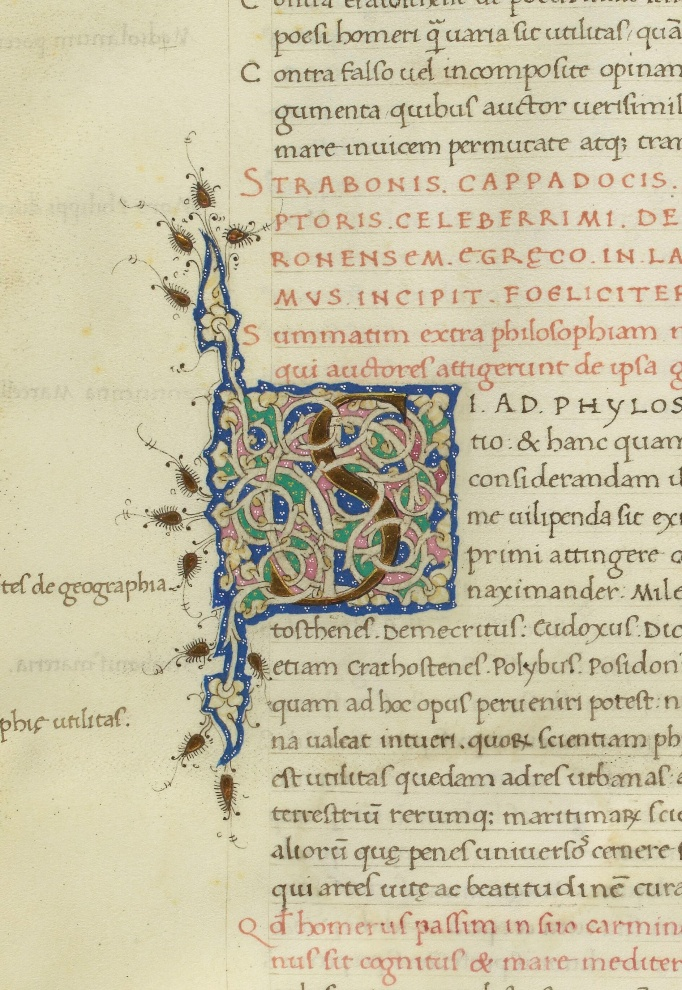 poesi homeri q̃ uaria sit utilitas, quã
Contra falso uel incomposite opinan
gumenta quibus auctor uerisimil
mare inuicem permutate atq; tran
STRABONIS. CAPPADOCIS.
PTORIS. CELEBERRIMI. DE
RONENSEM. EGRECO. IN. LA
MVS. INCIPIT. FOELICITER
Summatim extra philosophiam
qui auctores attigerunt de ipsa g
SI. AD. PHYLOS
tio: & hanc quam
considerandam
me uilipenda sit exi
primi attingere
tes de geographia.
naximander. Mile
tosthenes. Demecritus: Eudoxus. Dic
etiam Crathostenes. Polybus. Posidoni
quam ad hoc opus perueniri potest: n
phię utilitas.
na ualeat intueri. quoꝝ scientiam ph
est utilitas quedam ad res urbanas
terrestriũ rerumq; maritimaꝝ scie
aliorũ quę penes uniuersos cernere
qui artes uitę ac beatitudinẽ cura
Qđ homerus passim in suo carmin
nus sit cognitus & mare mediter